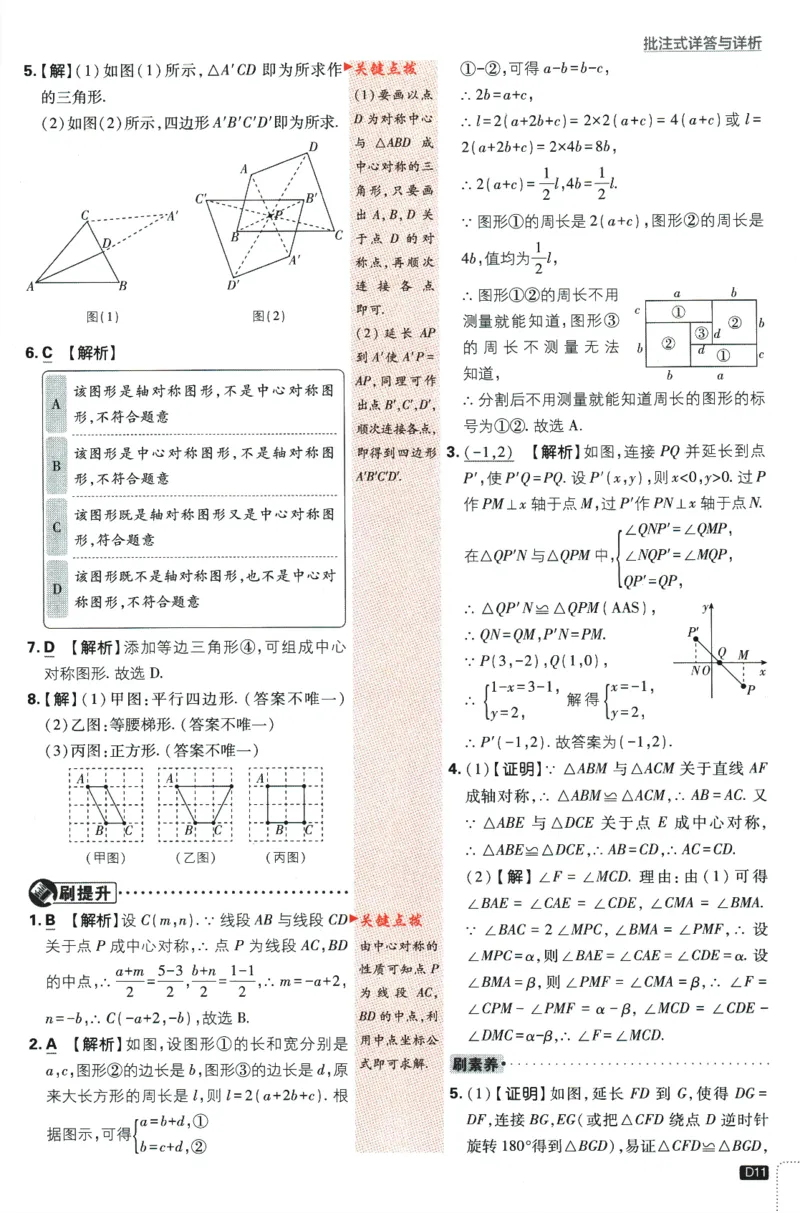 批注式详答与详析
5.【解】(1)如图(1)所示,△A′CD 即为所求作
的三角形.
(2)如图(2)所示,四边形A′B′C′D′即为所求.
C
A′
D
A
B
图(1)
D
A
C′
B′
P
B
C
A′
D′
图(2)
6. C 【解析】
A
该图形是轴对称图形,不是中心对称图
形,不符合题意
B
该图形是中心对称图形,不是轴对称图
形,不符合题意
C
该图形既是轴对称图形又是中心对称图
形,符合题意
D
该图形既不是轴对称图形,也不是中心对
称图形,不符合题意
7. D 【解析】添加等边三角形④,可组成中心
对称图形. 故选 D.
8.【解】(1)甲图:平行四边形. (答案不唯一)
(2)乙图:等腰梯形. (答案不唯一)
(3)丙图:正方形. (答案不唯一)
A
B C
(甲图)
A
B C
(乙图)
A
B C
(丙图)
刷提升
1. B 【解析】设 C(m,n). ∵ 线段 AB 与线段 CD
关于点 P 成中心对称,∴ 点 P 为线段 AC,BD
的中点,∴ (a+m)/2=(5-3)/2,(b+n)/2=(1-1)/2,∴ m=-a+2,
n=-b,∴ C(-a+2,-b),故选 B.
2. A 【解析】如图,设图形①的长和宽分别是
a,c,图形②的边长是 b,图形③的边长是 d,原
来大长方形的周长是 l,则 l=2(a+2b+c). 根
据图示,可得{a=b+d,①
b=c+d,②
关键点拨
(1)要画以点
D 为对称中心
与 △ABD 成
中心对称的三
角形,只要画
出 A,B,D 关
于点 D 的对
称点,再顺次
连接各点
即可.
(2)延长 AP
到 A′使 A′P=
AP,同理可作
出点 B′,C′,D′,
顺次连接各点,
即得到四边形
A′B′C′D′.
关键点拨
由中心对称的
性质可知点 P
为线段 AC,
BD 的中点,利
用中点坐标公
式即可求解.
①-②,可得 a-b=b-c,
∴ 2b=a+c,
∴ l=2(a+2b+c)=2×2(a+c)=4(a+c)或 l=
2(a+2b+c)=2×4b=8b,
∴ 2(a+c)=1/2 l,4b=1/2 l.
∵ 图形①的周长是 2(a+c),图形②的周长是
4b,值均为 1/2 l,
∴ 图形①②的周长不用
测量就能知道,图形③
的周长不测量无法
知道,
a b
c ① ② b
③ d
b ② d ① c
b a
∴ 分割后不用测量就能知道周长的图形的标
号为①②. 故选 A.
3. (-1,2) 【解析】如图,连接 PQ 并延长到点
P′,使 P′Q=PQ. 设 P′(x,y),则 x<0,y>0. 过 P
作 PM⊥x 轴于点 M,过 P′作 PN⊥x 轴于点 N.
在△QP′N 与△QPM 中,{∠QNP′=∠QMP,
∠NQP′=∠MQP,
QP′=QP,
∴ △QP′N≌△QPM(AAS),
∴ QN=QM,P′N=PM.
∵ P(3,-2),Q(1,0),
∴ {1-x=3-1, 解得{x=-1,
y=2, y=2,
y
P′
Q M
N O x
P
∴ P′(-1,2). 故答案为(-1,2).
4. (1)【证明】∵ △ABM 与△ACM 关于直线 AF
成轴对称,∴ △ABM≌△ACM,∴ AB=AC. 又
∵ △ABE 与△DCE 关于点 E 成中心对称,
∴ △ABE≌△DCE,∴ AB=CD,∴ AC=CD.
(2)【解】∠F=∠MCD. 理由:由(1)可得
∠BAE=∠CAE=∠CDE,∠CMA=∠BMA.
∵ ∠BAC=2∠MPC,∠BMA=∠PMF,∴ 设
∠MPC=α,则∠BAE=∠CAE=∠CDE=α. 设
∠BMA=β,则∠PMF=∠CMA=β,∴ ∠F=
∠CPM-∠PMF=α-β,∠MCD=∠CDE-
∠DMC=α-β,∴ ∠F=∠MCD.
刷素养
5. (1)【证明】如图,延长 FD 到 G,使得 DG=
DF,连接 BG,EG(或把△CFD 绕点 D 逆时针
旋转 180°得到△BGD),易证△CFD≌△BGD,
D11